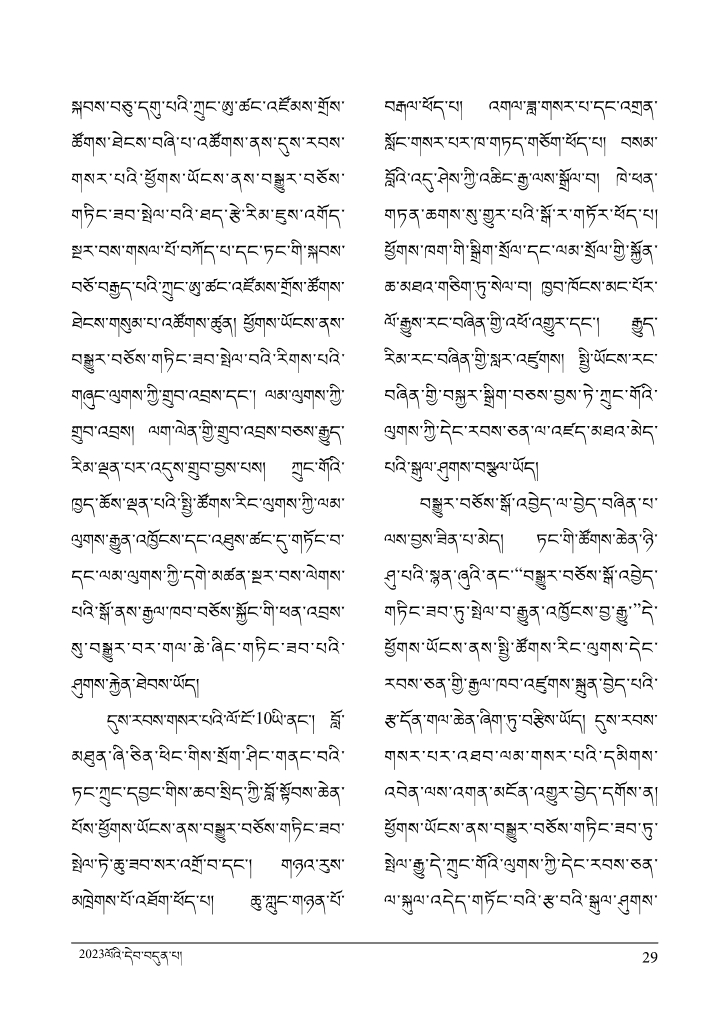 སྐབས་བཅུ་དགུ་པའི་ཀྲུང་ཨུ་ཚང་འཛོམས་གྲོས་
ཚོགས་ཐེངས་བཞི་པ་འཚོགས་ནས་དུས་རབས་
གསར་པའི་ཕྱོགས་ཡོངས་ནས་བསྒྱུར་བཅོས་
གཏིང་ཟབ་སྤེལ་བའི་ཐད་རྩེ་རིམ་ཇུས་འགོད་
སྔར་བས་གསལ་པོ་བཀོད་པ་དང་ཏང་གི་སྐབས་
བཅོ་བརྒྱད་པའི་ཀྲུང་ཨུ་ཚང་འཛོམས་གྲོས་ཚོགས་
ཐེངས་གསུམ་པ་འཚོགས་ཚུན། ཕྱོགས་ཡོངས་ནས་
བསྒྱུར་བཅོས་གཏིང་ཟབ་སྤེལ་བའི་རིགས་པའི་
གཞུང་ལུགས་ཀྱི་གྲུབ་འབྲས་དང་། ལམ་ལུགས་ཀྱི་
གྲུབ་འབྲས། ལག་ལེན་གྱི་གྲུབ་འབྲས་བཅས་རྒྱུད་
རིམ་ལྡན་པར་འདུས་གྲུབ་བྱས་པས། ཀྲུང་གོའི་
ཁྱད་ཆོས་ལྡན་པའི་སྤྱི་ཚོགས་རིང་ལུགས་ཀྱི་ལམ་
ལུགས་རྒྱུན་འཁྱོངས་དང་འཐུས་ཚང་དུ་གཏོང་བ་
དང་ལམ་ལུགས་ཀྱི་དགེ་མཚན་སྔར་བས་ལེགས་
པའི་སྒོ་ནས་རྒྱལ་ཁབ་བཅོས་སྐྱོང་གི་ཕན་འབྲས་
སུ་བསྒྱུར་བར་གལ་ཆེ་ཞིང་གཏིང་ཟབ་པའི་
ཤུགས་རྐྱེན་ཐེབས་ཡོད།
དུས་རབས་གསར་པའི་ལོ་ངོ་10ཡི་ནང་། བློ་
མཐུན་ཞི་ཅིན་ཕིང་གིས་སྲོག་ཤིང་གནང་བའི་
ཏང་ཀྲུང་དབྱང་གིས་ཆབ་སྲིད་ཀྱི་བློ་སྟོབས་ཆེན་
པོས་ཕྱོགས་ཡོངས་ནས་བསྒྱུར་བཅོས་གཏིང་ཟབ་
སྤེལ་ཏེ་ཆུ་ཟབ་སར་འགྲོ་བ་དང་། གཉའ་རུས་
མཁྲེགས་པོ་འཐོག་ཕོད་པ། ཆུ་ཀླུང་གཉན་པོ་
བརྒལ་ཕོད་པ། འགལ་ཟླ་གསར་པ་དང་འགྲན་
སློང་གསར་པར་ཁ་གཏད་གཅོག་ཕོད་པ། བསམ་
བློའི་འདུ་ཤེས་ཀྱི་འཆིང་རྒྱ་ལས་སྒྲོལ་བ། ཁེ་ཕན་
གཏན་ཆགས་སུ་གྱུར་པའི་སྒོ་ར་གཏོར་ཕོད་པ།
ཕྱོགས་ཁག་གི་སྒྲིག་སྲོལ་དང་ལམ་སྲོལ་གྱི་སྐྱོན་
ཆ་མཐའ་གཅིག་ཏུ་སེལ་བ། ཁྱབ་ཁོངས་མང་པོར་
ལོ་རྒྱུས་རང་བཞིན་གྱི་འཕོ་འགྱུར་དང་། རྒྱུད་
རིམ་རང་བཞིན་གྱི་སླར་འཛུགས། སྤྱི་ཡོངས་རང་
བཞིན་གྱི་བསྐྱར་སྒྲིག་བཅས་བྱས་ཏེ་ཀྲུང་གོའི་
ལུགས་ཀྱི་དེང་རབས་ཅན་ལ་འཛད་མཐའ་མེད་
པའི་སྒུལ་ཤུགས་བསྩལ་ཡོད།
བསྒྱུར་བཅོས་སྒོ་འབྱེད་ལ་བྱེད་བཞིན་པ་
ལས་བྱས་ཟིན་པ་མེད། ཏང་གི་ཚོགས་ཆེན་ཉི་
ཤུ་པའི་སྙན་ཞུའི་ནང་“བསྒྱུར་བཅོས་སྒོ་འབྱེད་
གཏིང་ཟབ་ཏུ་སྤེལ་བ་རྒྱུན་འཁྱོངས་བྱ་རྒྱུ་”དེ་
ཕྱོགས་ཡོངས་ནས་སྤྱི་ཚོགས་རིང་ལུགས་དེང་
རབས་ཅན་གྱི་རྒྱལ་ཁབ་འཛུགས་སྐྲུན་བྱེད་པའི་
རྩ་དོན་གལ་ཆེན་ཞིག་ཏུ་བརྩིས་ཡོད། དུས་རབས་
གསར་པར་འཐབ་ལམ་གསར་པའི་དམིགས་
འབེན་ལས་འགན་མངོན་འགྱུར་བྱེད་དགོས་ན།
ཕྱོགས་ཡོངས་ནས་བསྒྱུར་བཅོས་གཏིང་ཟབ་ཏུ་
སྤེལ་རྒྱུ་དེ་ཀྲུང་གོའི་ལུགས་ཀྱི་དེང་རབས་ཅན་
ལ་སྐུལ་འདེད་གཏོང་བའི་རྩ་བའི་སྒུལ་ཤུགས་
2023ལོའི་དེབ་བདུན་པ།
29